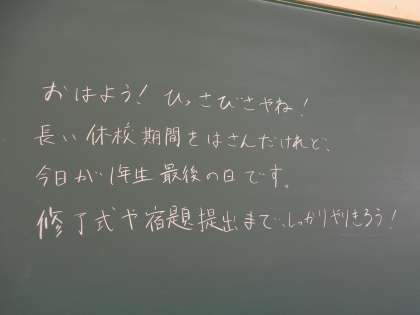 おはよう！ひっさびさやね！
長い休校期間をはさんだけれど、
今日が1年生最後の日です。
修了式や宿題提出まで、しっかりやりきろう！